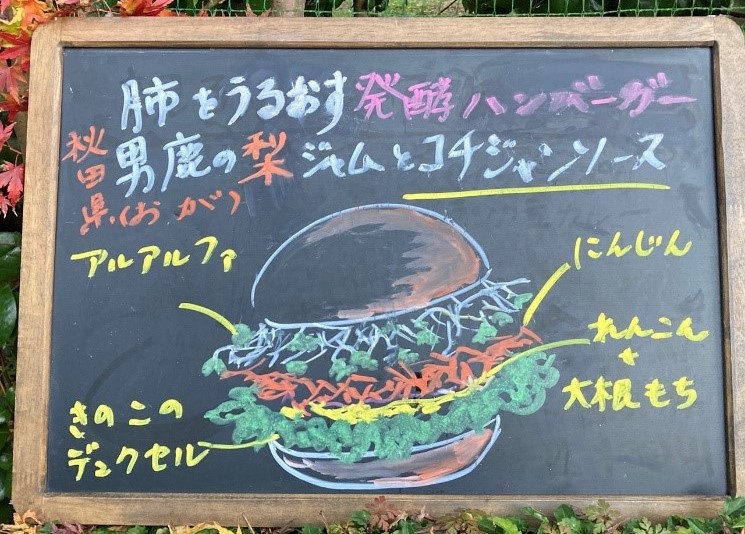 肺をうるおす発酵ハンバーガー
秋田県(おが)
男鹿の梨ジャムとコチジャンソース
アルアルファ
にんじん
れんこん
+
大根もち
きのこの
デュクセル